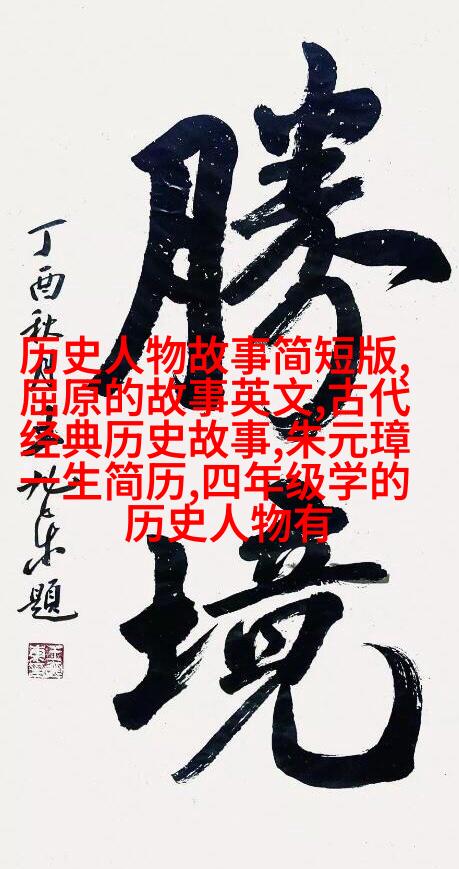 勝境
丁酉秋月 題
历史人物故事简短版,
屈原的故事英文,古代
经典历史故事,朱元璋
一生简历,四年级学的
历史人物有